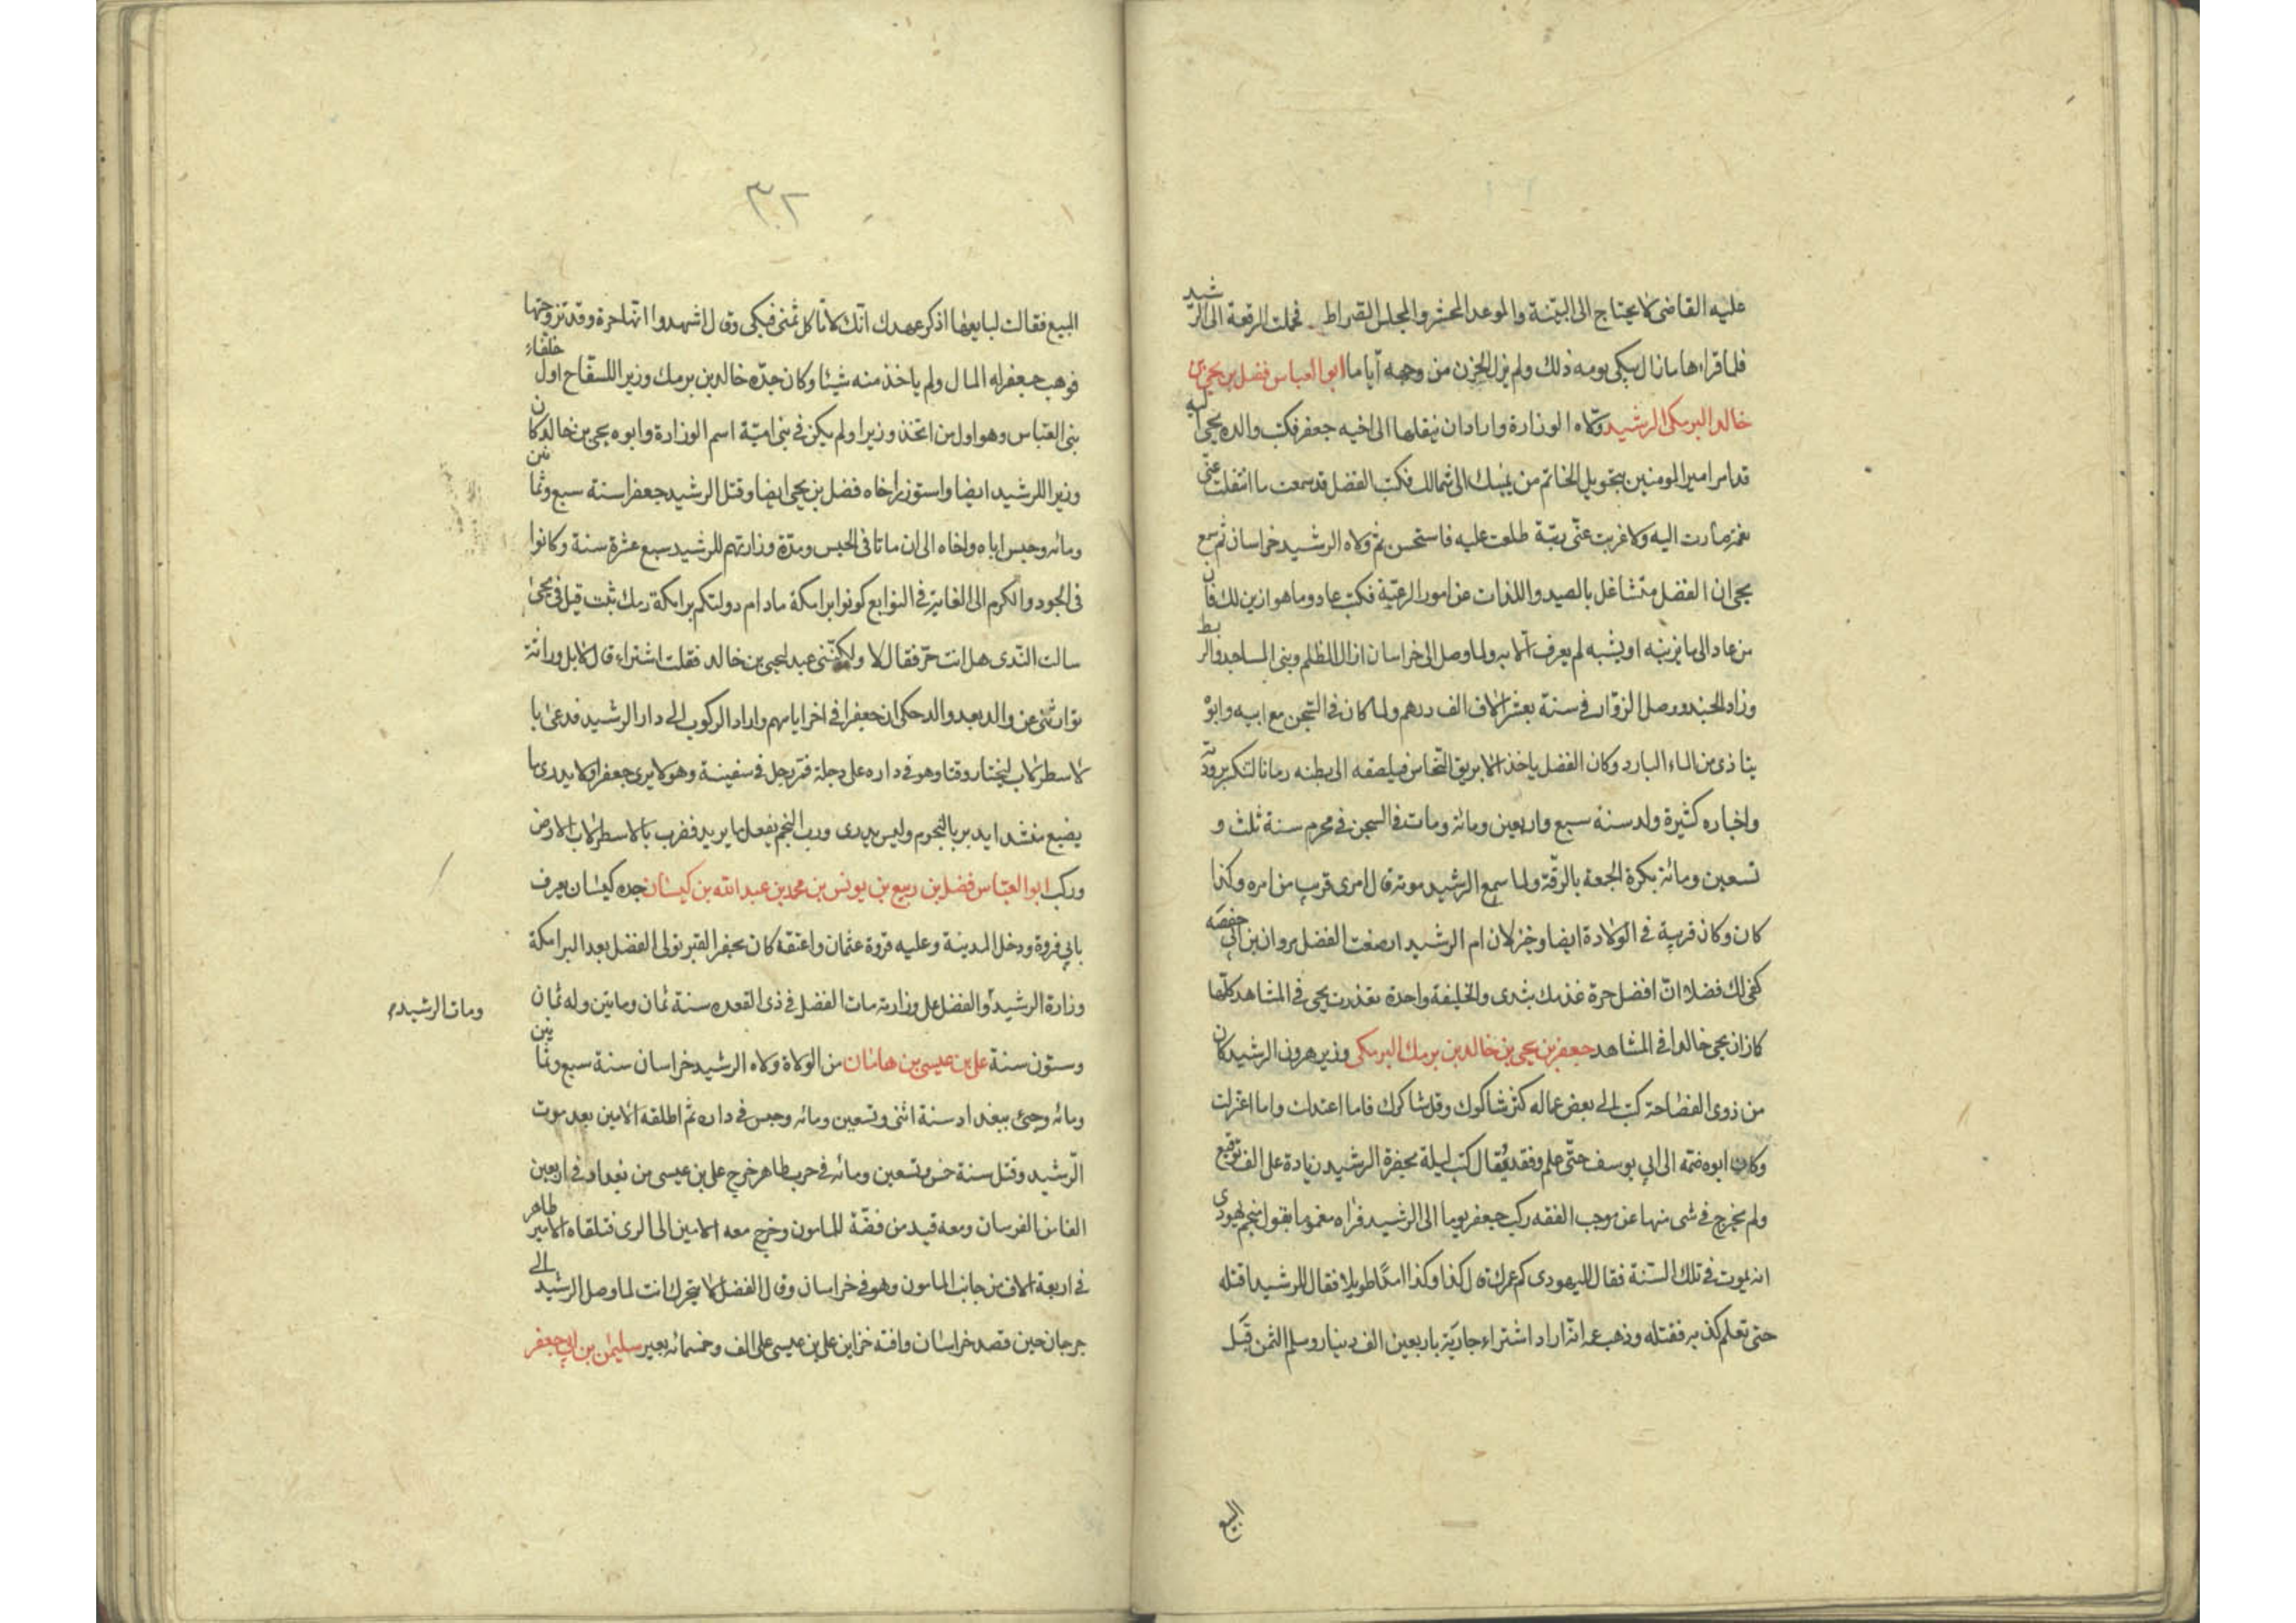 عليه القاضى لا يحتاج الى البينة والموعد المحشر والمجلس الصراط فحملت الرقعة الى الرشيد
فلما قراءها ما زال يبكى يومه ذلك ولم يزل الحزن من وجهه اياما ابو العباس فضل بن يحيى بن
خالد البرمكى الرشيد ولاه الوزارة واراد ان ينقلها الى اخيه جعفر فكتب والده يحيى اليه
قد امر امير المومنين بتحويل الخاتم من يمينك الى شمالك فكتب الفضل قد سمعت ما انتقلت عنى
نعمة صارت اليه ولا غربت عنى رتبة طلعت عليه فاستحسن ثم ولاه الرشيد خراسان ثم سمع
يحيى ان الفضل متشاغل بالصيد واللذات عن امور الرعية فكتب عاود ما هو ازين لك فان
من عاد الى ما يزينه او يشينه لم يعرف الا به ولما وصل الى خراسان ازال الظلم وبنى المساجد والربط
وزاد الجند ووصل الزوار فى سنة بعشر الاف الف درهم ولما كان فى السجن مع ابيه وابوه
يتاذى من الماء البارد وكان الفضل ياخذ الابريق النحاس فيلصقه الى بطنه زمانا لتكسر برودته
واخباره كثيرة ولد سنة سبع واربعين ومائة ومات فى السجن فى محرم سنة ثلث و
تسعين ومائة بكرة الجمعة بالرقة ولما سمع الرشيد موته قال امرى قريب من امره وكذا
كان وكان قريبه فى الولادة ايضا وخيزران ام الرشيد ارضعت الفضل مروان بن ابى حفصه
كفى لك فضلا ان افضل حرة غذتك بثدى والخليفة واحدة لقد زنت يحيى فى المشاهد كلها
كما زان يحيى خالدا فى المشاهد جعفر بن يحيى بن خالد بن برمك البرمكى وزير هرون الرشيد كان
من ذوى الفصاحة كتب الى بعض عماله كثر شاكوك وقل شاكرك فاما اعتدلت واما اعتزلت
وكان ابوه ضمه الى ابى يوسف حتى علم وفقه يقال كتب ليلة بحضرة الرشيد زيادة على الف توقيع
ولم يخرج فى شى منها عن موجب الفقه ركب جعفر يوما الى الرشيد فراه مغموما بقول منجم يهودى
انه يموت فى تلك السنة فقال لليهودى كم عمرك قال كذا وكذا امدا طويلا فقال للرشيد اقتله
حتى تعلم كذبه فقتله وذهب غمه انه اراد اشتراء جارية باربعين الف دينار وسلم الثمن قبل
البيع
٣٢
البيع فقالت لبايعها اذكر عهدك انك لا تاكل ثمنى فبكى وقال اشهدوا انها حرة وقد تزوجتها
فوهب جعفر له المال ولم ياخذ منه شيئا وكان جده خالد بن برمك وزيرا للسفاح اول خلفاء
بنى العباس وهو اول من اتخذ وزيرا ولم يكن فى بنى امية اسم الوزارة وابوه يحيى بن خالد كان
وزيرا للرشيد ايضا واستوزر اخاه فضل بن يحيى ايضا وقتل الرشيد جعفرا سنة سبع وثمانين
ومائه وحبس اباه واخاه الى ان ماتا فى الحبس ومدة وزارتهم للرشيد سبع عشرة سنة وكانوا
فى الجود والكرم الى الغاية فى التوابع كونوا برامكة ما دام دولتكم برامكة رمك ثبت قيل فى يحيى
سالت الندى هل انت حر فقال لا ولكننى عبد ليحيى بن خالد فقلت اشتراء قال لا بل وراثة
توارثنى عن والد بعد والد حكى ان جعفرا فى اخر ايامهم واراد الركوب الى دار الرشيد فدعى با
لاسطرلاب ليختار وقتا وهو فى داره على دجلة فمر رجل فى سفينة وهو لا يرى جعفرا ولا يدرى ما
يصنع منشدا يدبر بالنجوم وليس يدرى ورب النجم يفعل ما يريد فضرب بالاسطرلاب الارض
وركب ابو العباس فضل بن ربيع بن يونس بن محمد بن عبد الله بن كيسان جده كيسان يعرف
بابى فروة ودخل المدينة وعليه فروة عثمان واعتقه كان يحفر القبر تولى الفضل بعد البرامكة
وزارة الرشيد والفضل على وزارته مات الفضل فى ذى القعده سنة ثمان ومايتين وله ثمان
ومات الرشيد
وستون سنة على بن عيسى بن هامان من الولاة ولاه الرشيد خراسان سنة سبع وثمانين
ومائه وجئ ببغداد سنة اثنى وتسعين ومائه وحبس فى داره ثم اطلقه الامين بعد موت
الرشيد وقتل سنة خمس وتسعين ومائه فى حرب طاهر خرج على بن عيسى من بغداد فى اربعين
الفا من الفرسان ومعه قيد من فضة للمامون وخرج معه الامين الى الرى فتلقاه الامير طاهر
فى اربعة الاف من جانب المامون وهو فى خراسان وقال الفضل لا يتحرك انت لما وصل الرشيد الى
جرجان حين قصد خراسان وافته خزاين على بن عيسى على الف وخمسمائه بعير سليمن بن ابى جعفر